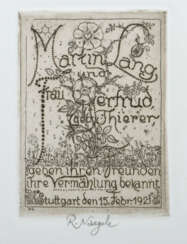 Martin Lang
und
Frau
Gertrud
geb. Thierer
geben ihren Freunden
ihre Vermählung bekannt
Stuttgart den 15. Febr. 1921
R. Naegele